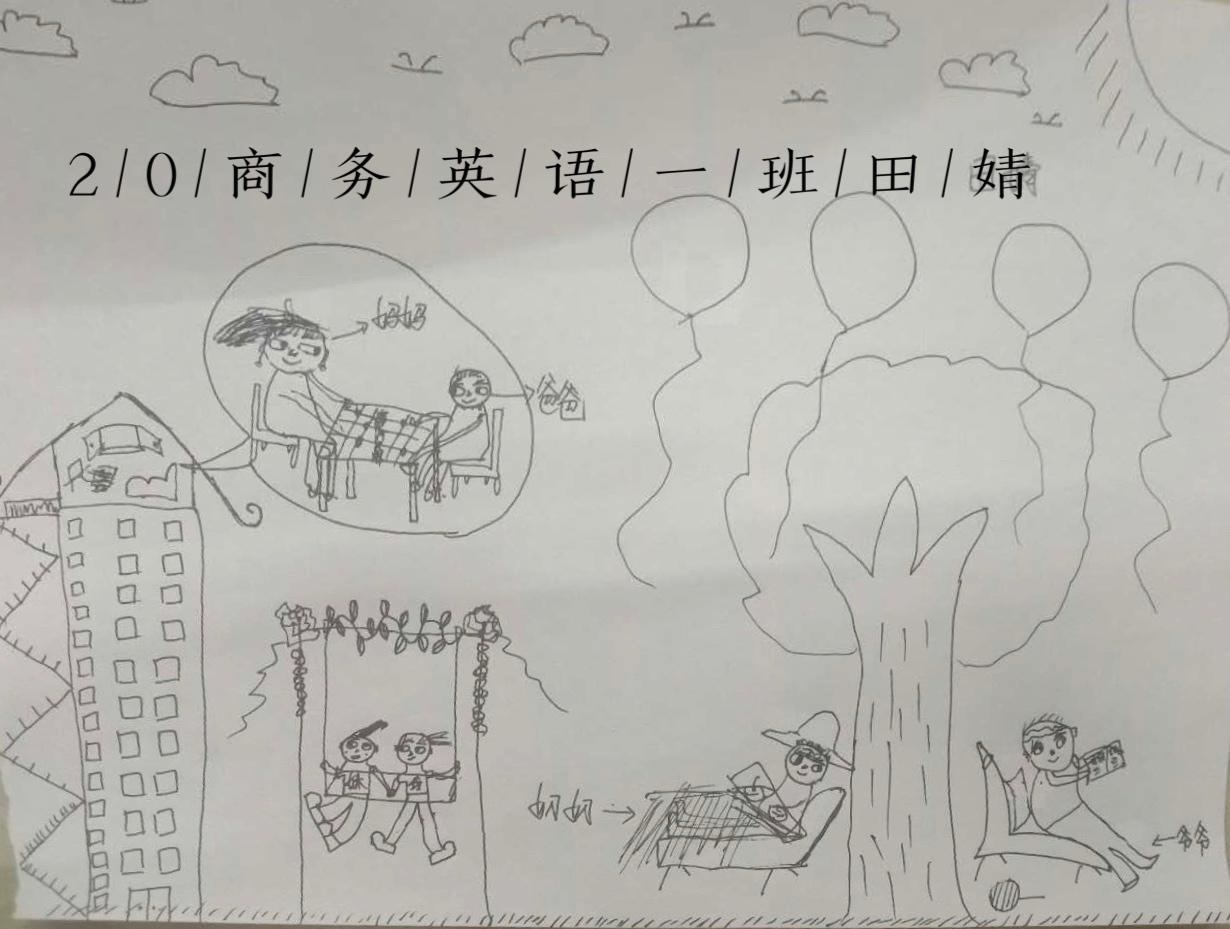 2/0/商/务/英/语/一/班/田/婧
妈妈
爸爸
妹
奶奶
爷爷